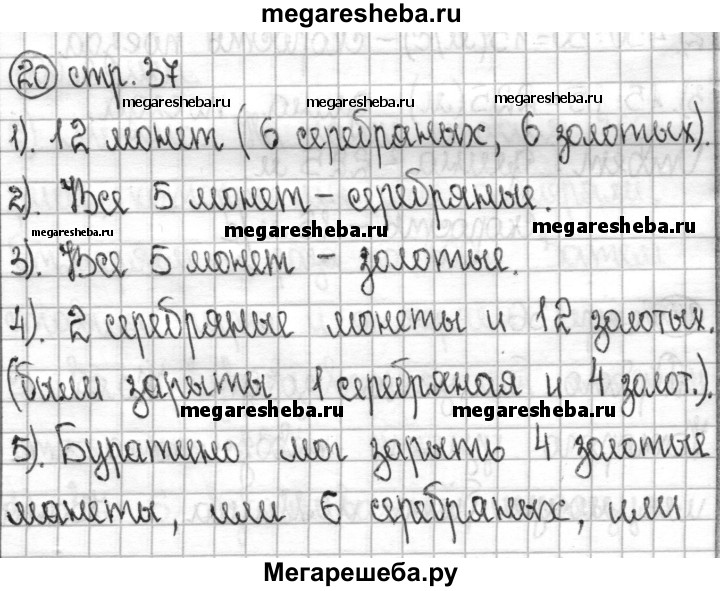 megaresheba.ru
20 стр. 37
megaresheba.ru megaresheba.ru megaresheba.ru
1). 12 монет (6 серебряных, 6 золотых).
2). Все 5 монет – серебряные.
megaresheba.ru megaresheba.ru megaresheba.ru
3). Все 5 монет – золотые.
4). 2 серебряные монеты и 12 золотых.
(были зарыты 1 серебряная и 4 золот.).
megaresheba.ru megaresheba.ru
5). Буратино мог зарыть 4 золотые
монеты, или 6 серебряных, или
Мегарешеба.ру